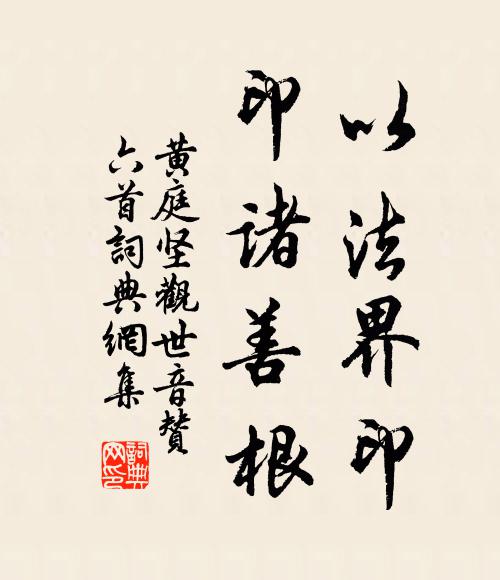 以法界印
印诸善根
黄庭坚觀世音贊
六首詞典網集
詞典
网印